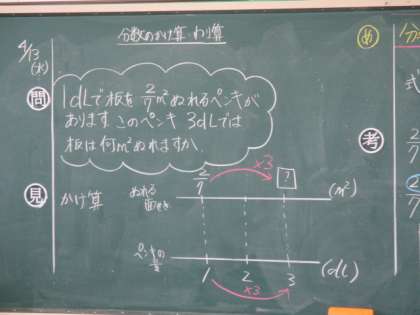 分数のかけ算・わり算
4/13
(水)
問
1dLで板を 2/7 m²ぬれるペンキが
あります。このペンキ 3dLでは
板は何m²ぬれますか。
見
かけ算
ぬれる
面せき
2/7
×3
?
(m²)
ペンキの
量
1
2
3
(dL)
×3
め
分
式
考
2/7